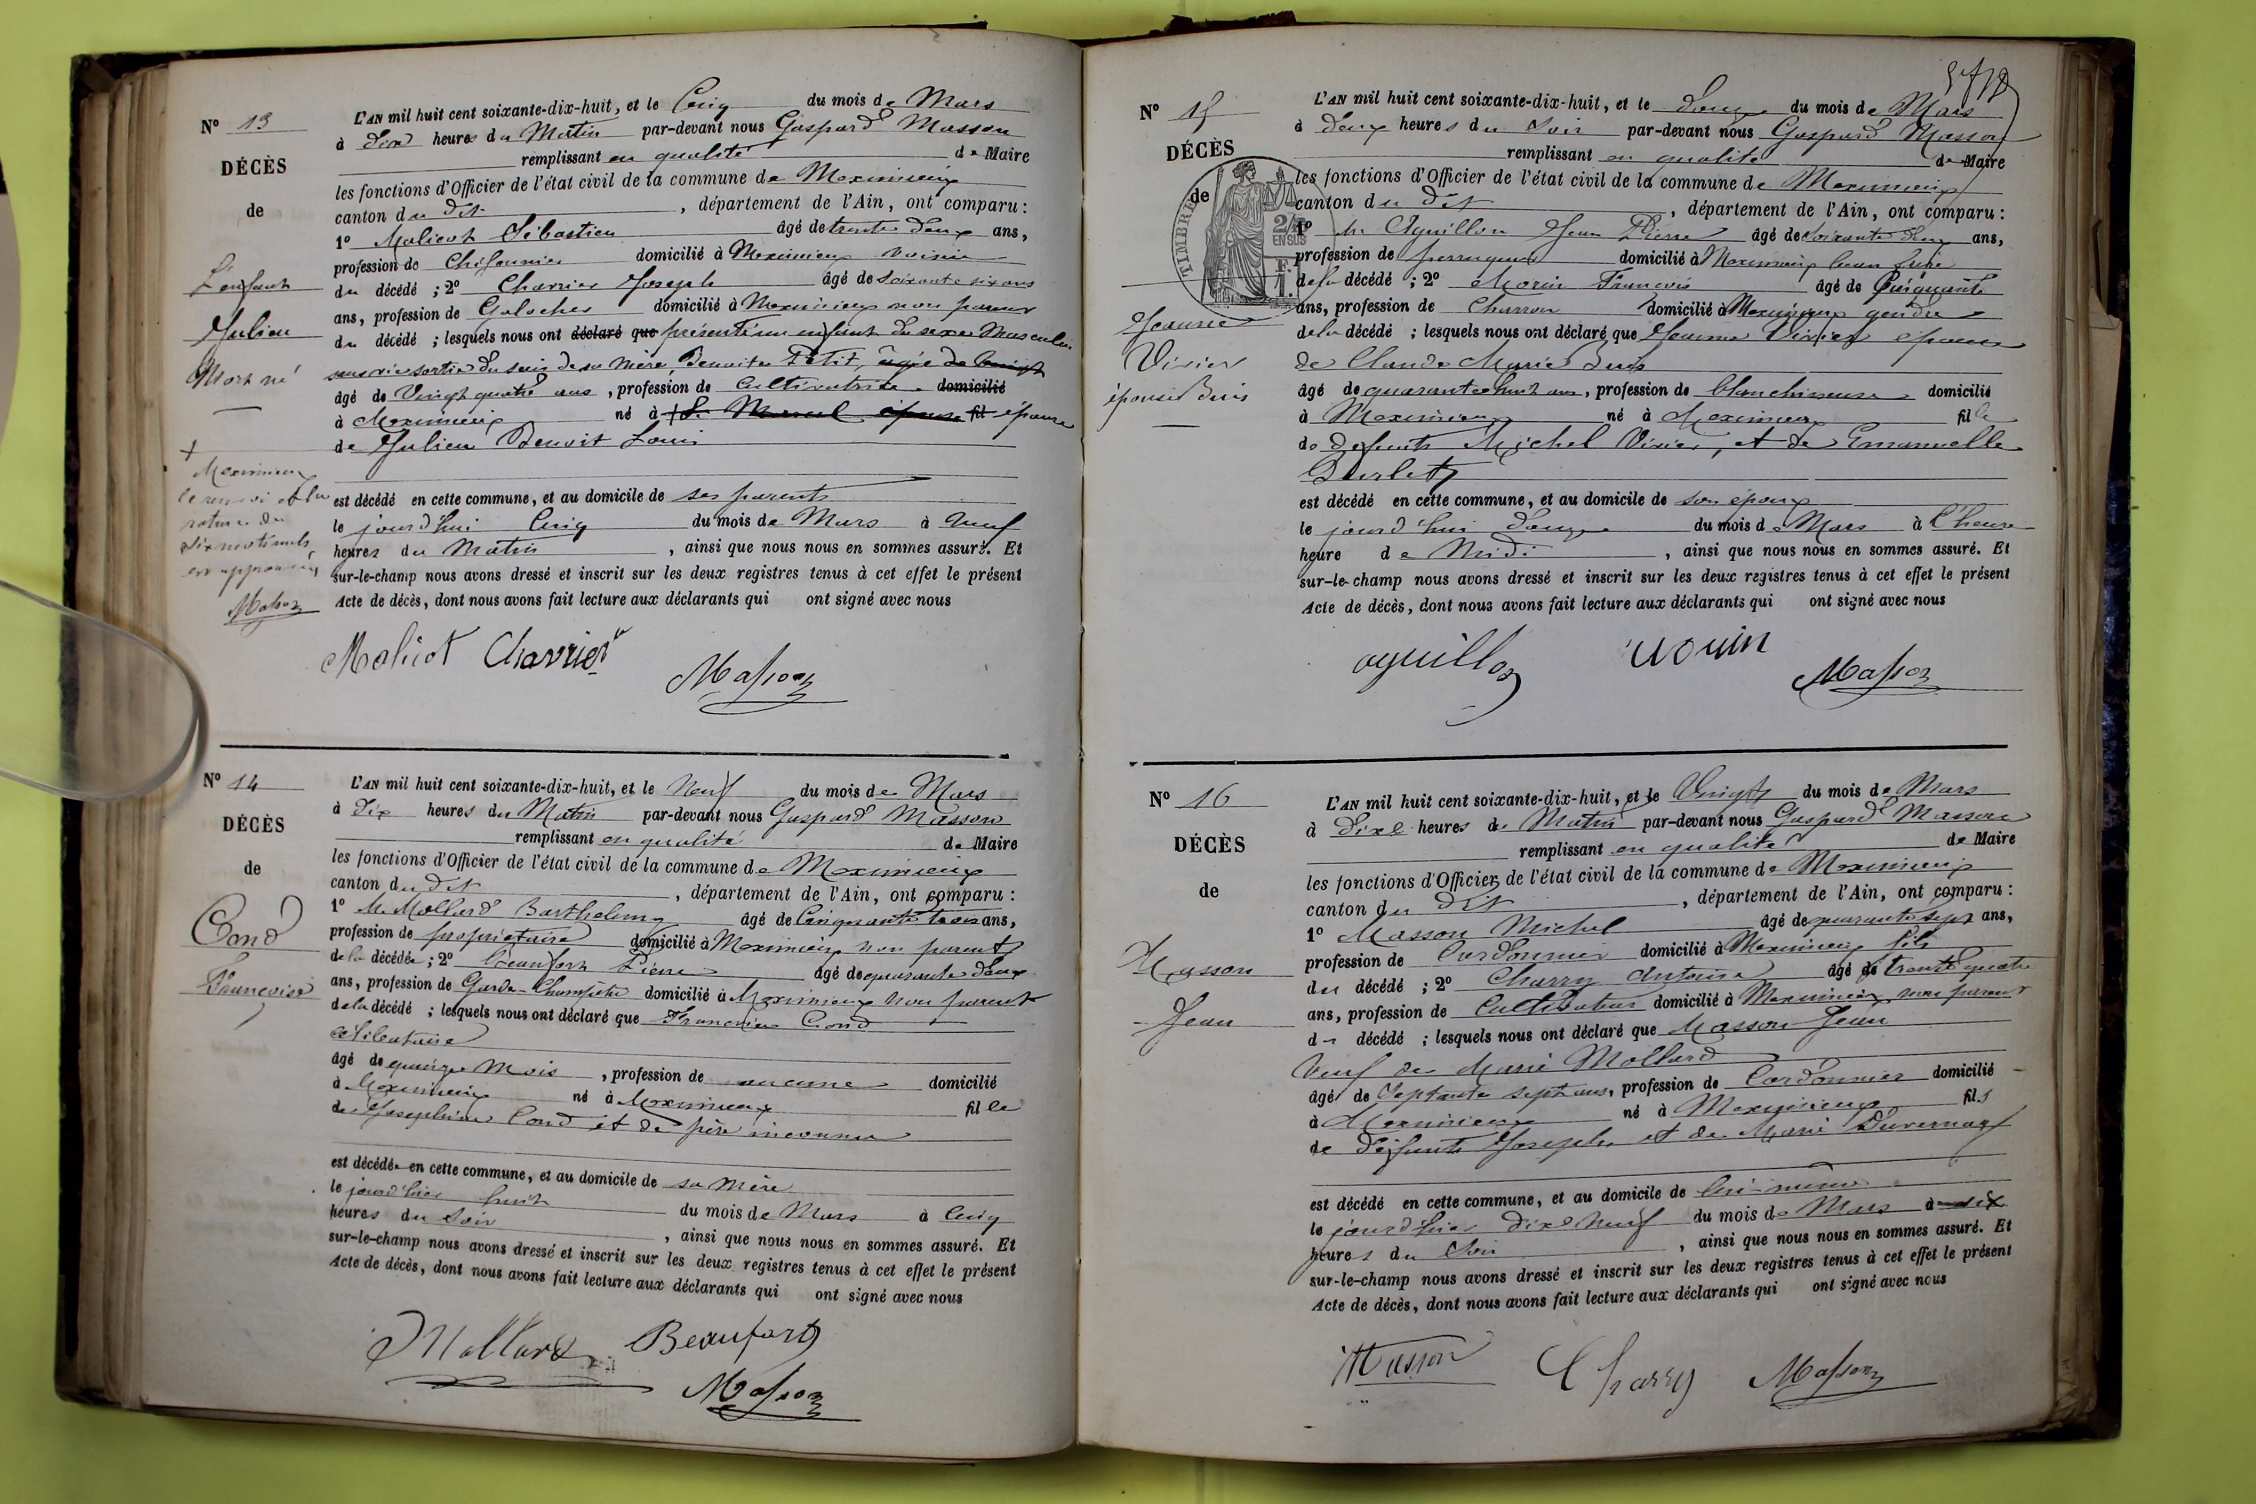 N° 13
DÉCÈS
de
L'enfant
Julien
Mort né
+
Meximieux
le renvoi et la
rature de
dix mots nuls
est approuvés
Masson
L'AN mil huit cent soixante-dix-huit, et le Cinq du mois de Mars
à dix heures du Matin par-devant nous Gaspard Masson
remplissant en qualité de Maire
les fonctions d'Officier de l'état civil de la commune de Meximieux
canton du dit, département de l'Ain, ont comparu :
1° Malicot Sébastien âgé de trente deux ans,
profession de Chifonnier domicilié à Meximieux voisin
du décédé ; 2° Charrier Joseph âgé de soixante six ans
ans, profession de Galocher domicilié à Meximieux non parent
du décédé ; lesquels nous ont déclaré que présenté un enfant du sexe Masculin
sans vie sortie du sein de sa mère, Benoite Petit, âgée de Vingt
âgé de Vingt quatre ans, profession de Cultivatrice domicilié
à Meximieux né à St Marcel épouse fil épouse
de Julien Benoit Louis
est décédé en cette commune, et au domicile de ses parents
le jourd'hui Cinq du mois de Mars à Neuf
heures du Matin, ainsi que nous nous en sommes assuré. Et
sur-le-champ nous avons dressé et inscrit sur les deux registres tenus à cet effet le présent
Acte de décès, dont nous avons fait lecture aux déclarants qui ont signé avec nous
Malicot Charrier
Masson
N° 14
DÉCÈS
de
Cond
Françoise
L'AN mil huit cent soixante-dix-huit, et le Neuf du mois de Mars
à Dix heures du Matin par-devant nous Gaspard Masson
remplissant en qualité de Maire
les fonctions d'Officier de l'état civil de la commune de Meximieux
canton du dit, département de l'Ain, ont comparu :
1° M. Mollard Barthelemy âgé de Cinquante trois ans,
profession de propriétaire domicilié à Meximieux non parent
de la décédée ; 2° Beaufort Pierre âgé de quarante deux
ans, profession de Garde-Champêtre domicilié à Meximieux non parent
de la décédé ; lesquels nous ont déclaré que Françoise Cond
célibataire
âgé de quinze Mois, profession de aucune domicilié
à Meximieux né à Meximieux fille
de Josephine Cond et de père inconnu
est décédée en cette commune, et au domicile de sa mère
le jourd'hier huit du mois de Mars à Cinq
heures du Soir, ainsi que nous nous en sommes assuré. Et
sur-le-champ nous avons dressé et inscrit sur les deux registres tenus à cet effet le présent
Acte de décès, dont nous avons fait lecture aux déclarants qui ont signé avec nous
Mollard Beaufort
Masson
N° 15
DÉCÈS
de
TIMBRE
2/10
EN SUS
Jeanne
Vivier
épouse Buis
L'AN mil huit cent soixante-dix-huit, et le Douze du mois de Mars
à Deux heures du Soir par-devant nous Gaspard Masson
remplissant en qualité de Maire
les fonctions d'Officier de l'état civil de la commune de Meximieux
canton du dit, département de l'Ain, ont comparu :
1° M. Aguillon Jean Pierre âgé de Soixante deux ans,
profession de perruquier domicilié à Meximieux beau frère
de la décédé ; 2° Morin François âgé de Cinquante
ans, profession de Charron domicilié à Meximieux gendre
de la décédé ; lesquels nous ont déclaré que Jeanne Vivier épouse
de Claude Marie Buis
âgé de quarante huit ans, profession de blanchisseuse domicilié
à Meximieux né à Meximieux fille
de défunts Michel Vivier, et de Emanuelle
est décédé en cette commune, et au domicile de son époux
le jourd'hui douze du mois de Mars à l'heure
heure de Midi, ainsi que nous nous en sommes assuré. Et
sur-le-champ nous avons dressé et inscrit sur les deux registres tenus à cet effet le présent
Acte de décès, dont nous avons fait lecture aux déclarants qui ont signé avec nous
aguillon Morin
Masson
N° 16
DÉCÈS
de
Masson
Jean
L'AN mil huit cent soixante-dix-huit, et le Vingt du mois de Mars
à dix heures du Matin par-devant nous Gaspard Masson
remplissant en qualité de Maire
les fonctions d'Officier de l'état civil de la commune de Meximieux
canton du dit, département de l'Ain, ont comparu :
1° Masson Michel âgé de quarante sept ans,
profession de Cordonnier domicilié à Meximieux fils
du décédé ; 2° Charry Antoine âgé de trente quatre
ans, profession de Cultivateur domicilié à Meximieux non parent
du décédé ; lesquels nous ont déclaré que Masson Jean
Veuf de Marie Mollard
âgé de Septante sept ans, profession de Cordonnier domicilié
à Meximieux né à Meximieux fils
de défunts Joseph et de Marie Duvernay
est décédé en cette commune, et au domicile de lui-même
le jourd'hier dix Neuf du mois de Mars à six
heures du Soir, ainsi que nous nous en sommes assuré. Et
sur-le-champ nous avons dressé et inscrit sur les deux registres tenus à cet effet le présent
Acte de décès, dont nous avons fait lecture aux déclarants qui ont signé avec nous
Masson Charry Masson